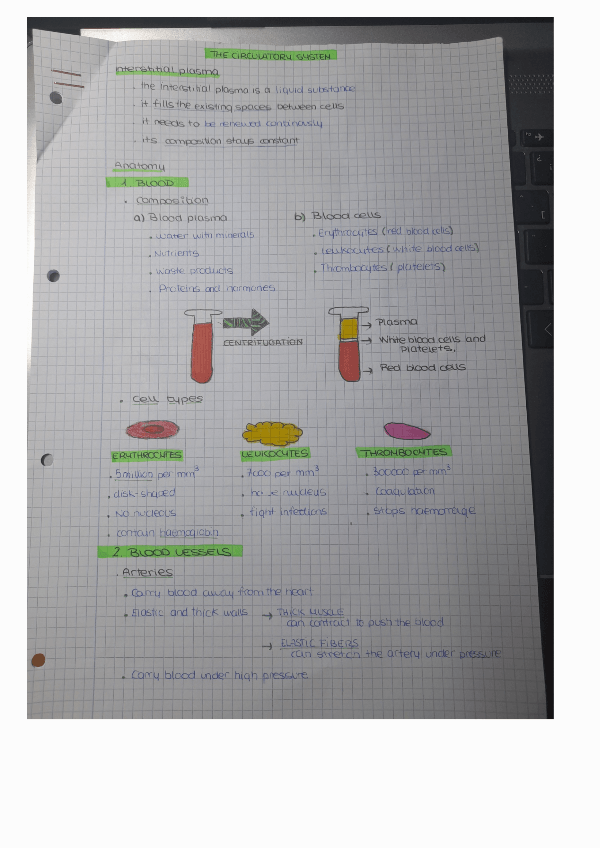 THE CIRCULATORY SYSTEM
Interstitial plasma
· the interstitial plasma is a liquid substance
· it fills the existing spaces between cells
· it needs to be renewed continously
· its composition stays constant
Anatomy
1. BLOOD
· composition
a) Blood plasma
· water with minerals
· Nutrients
· waste products
· Proteins and hormones
b) Blood cells
· Erythrocytes (red blood cells)
· Leukocytes (white blood cells)
· Thrombocytes (platelets)
CENTRIFUGATION
→ Plasma
→ White blood cells and
platelets.
→ Red blood cells
· Cell types
ERYTHROCYTES
· 5 million per mm³
· disk-shaped
· No nucleus
· contain haemoglobin
LEUKOCYTES
· 7000 per mm³
· have nucleus
· fight infections
THROMBOCYTES
· 300000 per mm³
· Coagulation
· stops haemorrage
2. BLOOD VESSELS
· Arteries
· Carry blood away from the heart
· Elastic and thick walls → THICK MUSCLE
can contract to push the blood
→ ELASTIC FIBERS
can stretch the artery under pressure
· Carry blood under high pressure